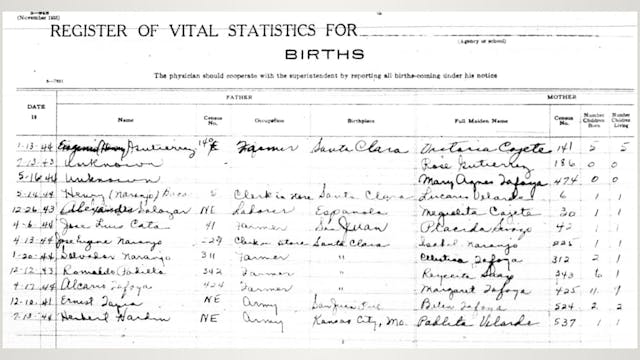 5-968
(November 1935)
REGISTER OF VITAL STATISTICS FOR
(Agency or school)
BIRTHS
The physician should cooperate with the superintendent by reporting all births coming under his notice
FATHER MOTHER
DATE
19
Name Census No. Occupation Birthplace Full Maiden Name Census No. Number Children Born Number Children Living
1-13-44 Eugenio Henry Gutierrez Farmer Santa Clara Victoria Cajete 141 5 5
7-13-43 Unknown Rose Gutierrez 186 0 0
5-16-44 Unknown Mary Agnes Tafoya 474 0 0
5-14-44 Henry (Naranjo) Clerk in Store Santa Clara Velarde 6 1 1
12-26-43 Alexander Salazar NE Laborer Espanola Cajete 30 1 1
4-6-44 Jose Luis Cata 41 Farmer San Juan Placida 42 1
4-13-44 Jose Eugene Naranjo Clerk in Store Santa Clara Isabel Naranjo 225 1 1
1-20-44 Salvador Naranjo 311 Farmer " Tafoya 312 2 1
12-12-43 Romaldo Padilla 342 Farmer " 343 6 1
4-17-44 Alcario Tafoya 424 Farmer " Margaret Tafoya 425 11
12-12-41 Ernest Tapia NE Army San Juan Belen Tafoya 524 2 2
7-13-44 Herbert Hardin NE Army Kansas City, Mo. Pablita Velarde 537 1 1